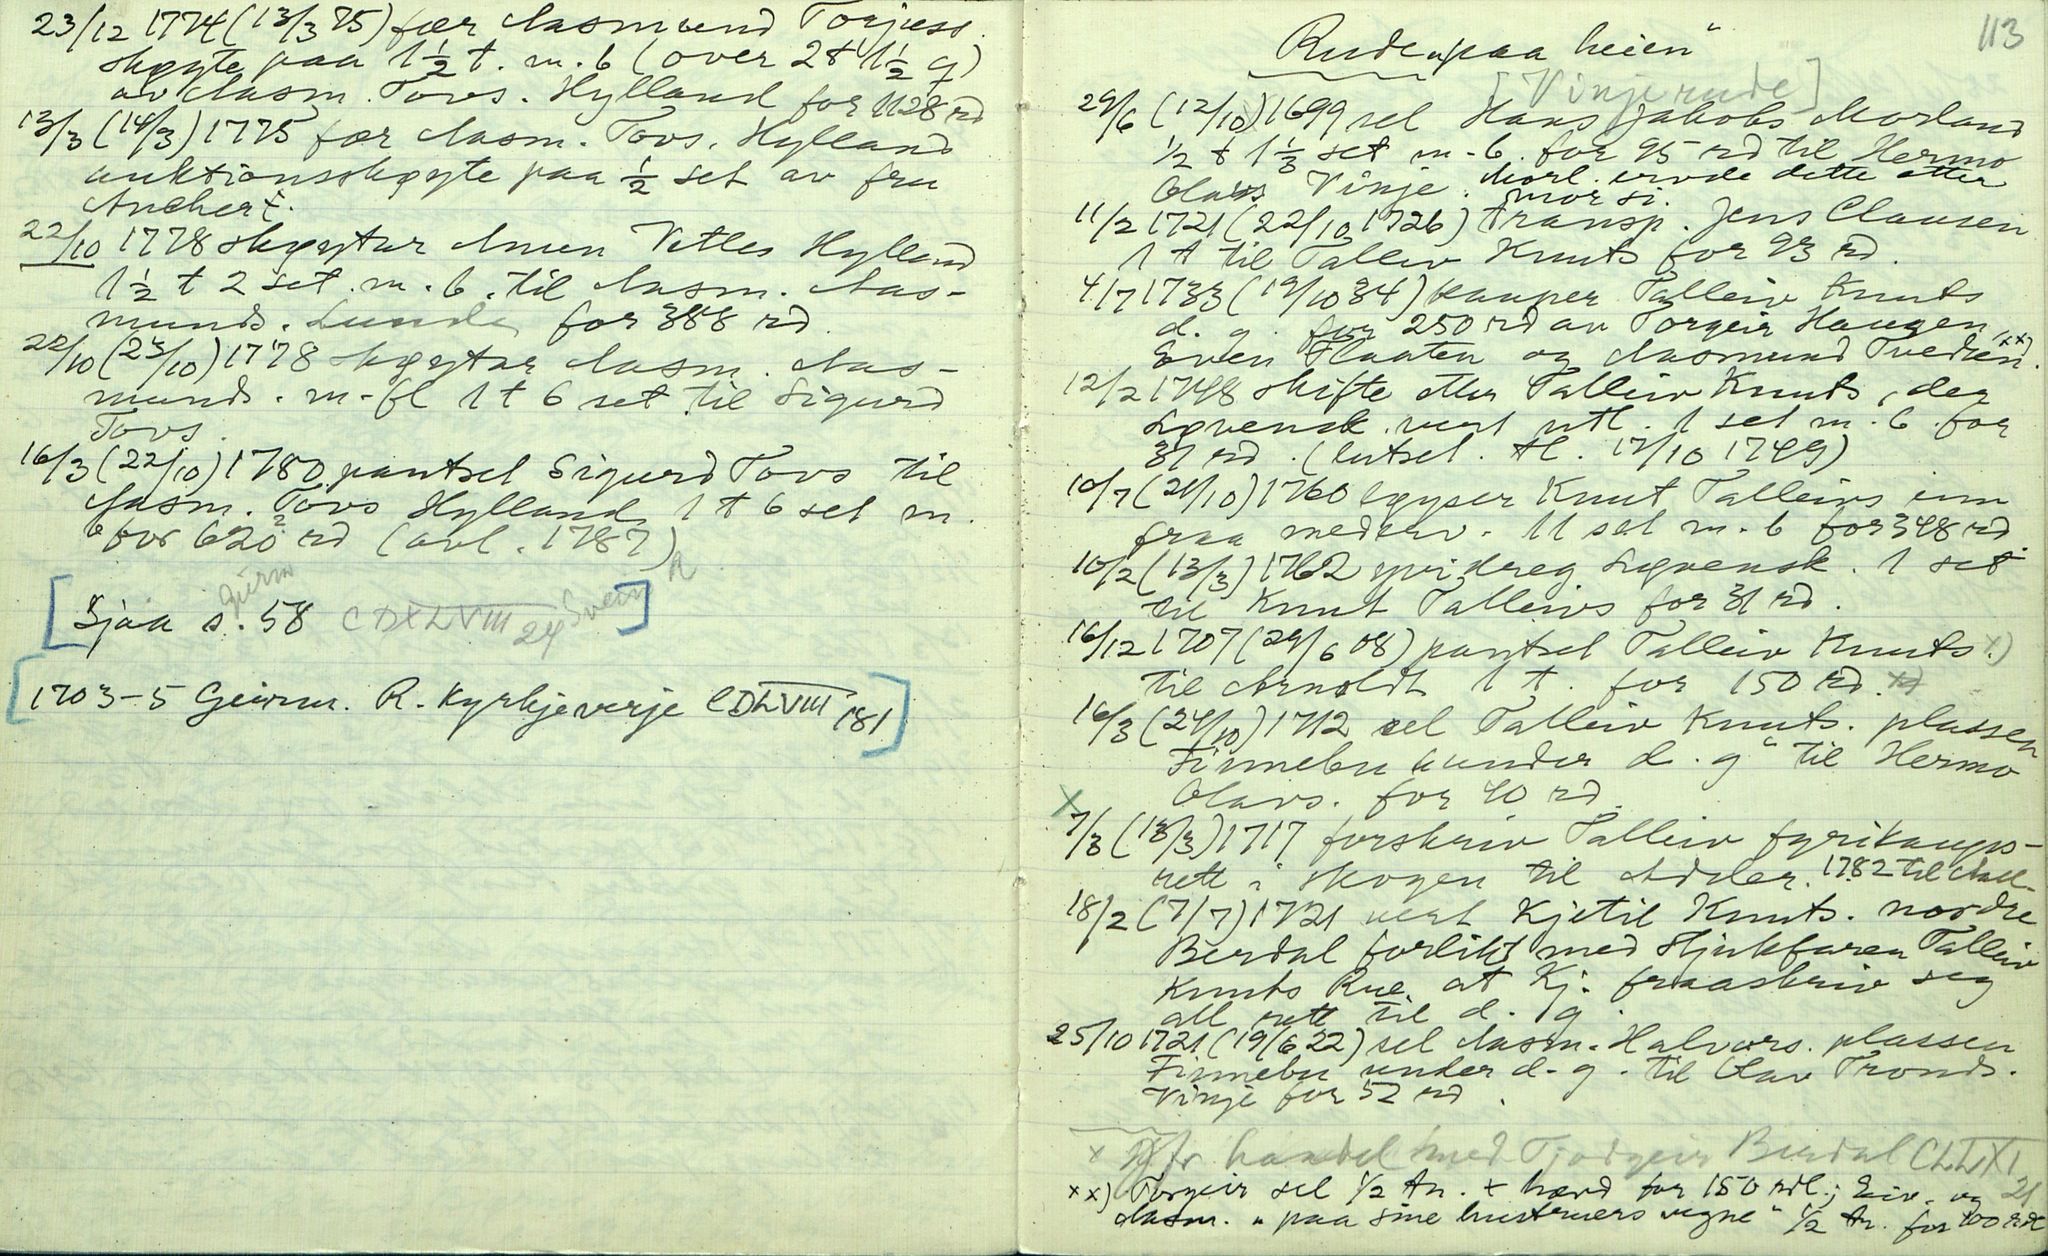 23/12 1774 (13/3 75) fær Aasmund Torjess.
skøyte paa 1½ t. m. b (over 2 t 1½ q)
av Aasm. Tovs. Hylland for 1128 rd
13/3 (14/3) 1775 fær Aasm. Tovs. Hylland
auktionsskøyte paa ½ set av fru
Ancher.
22/10 1778 skøytar Aanen Vetles Hylland
1½ t 2 set. m. b. til Aasm. Aas-
munds. Lunde for 388 rd.
22/10 (23/10) 1778 skøytar Aasm. Aas-
munds. m-fl 1 t 6 set til Sigurd
Tovs.
16/3 (22/10) 1780 pantsel Sigurd Tovs til
Aasm. Tovs Hylland 1 t 6 set m.
b for 620 rd (avl. 1787)
[Sjaa s. 58 CDXLVIII 24 Svein]
Geirm
[1703-5 Geirm. R. Kyrkjeverje CDLVIII 181]
113
Rude "paa heien"
[Vinjerude]
29/6 (12/10) 1699 sel Hans Jakobs Morland
½ t 1⅓ set m. b. for 95 rd til Hermo
Olavs Vinje. Morl. ervde dette etter
mor si.
11/2 1721 (22/10 1726) transp. Jens Clausen
1 t til Talleiv Knuts for 93 rd.
4/7 1733 (19/10 34) kauper Talleiv Knuts
d. g. for 250 rd av Torgeir Haugen,
Eiven Flaaten og Aasmund Tveiten. xx)
12/2 1748 skifte etter Talleiv Knuts, der
Sovensk. vert utl. 1 set m. b. for
31 rd. (lutsel. tl. 17/10 1749)
10/7 (21/10) 1760 løyser Knut Talleivs inn
fraa mederv. 11 set m. b for 348 rd
10/2 (13/3) 1762 yvidreg Sovensk. 1 set
til Knut Talleivs for 31 rd.
16/12 1707 (29/6 08) pantsel Talleiv Knuts x)
til Arnoldt 1 t. for 150 rd.
16/3 (24/10) 1712 sel Talleiv Knuts. plassen
Finnebu "under d. g" til Hermo
Olavs. for 40 rd.
x
7/3 (13/3) 1717 forskriv Talleiv fyrikaups-
rett i skogen til Adeler. 1782 til Aall-
18/2 (7/7) 1721 vert Kjetil Knuts. nordre
Berdal forlikt med Hjukfaren Talleiv
Knuts Rue at Kj. fraaskriv seg
all rett til d. g.
25/10 1721 (19/6 22) sel Aasm. Halvors. plassen
Finnebu under d. g. til Olav Tronds.
Vinje for 52 rd.
x Jfr handel med Tjodgeir Berdal CLLXI 21
xx) Torgeir sel ½ tn. + hærd for 150 rdl; Eiv. og
Aasm. "paa sine hustruers vegne" ½ tn. for 100 rdl